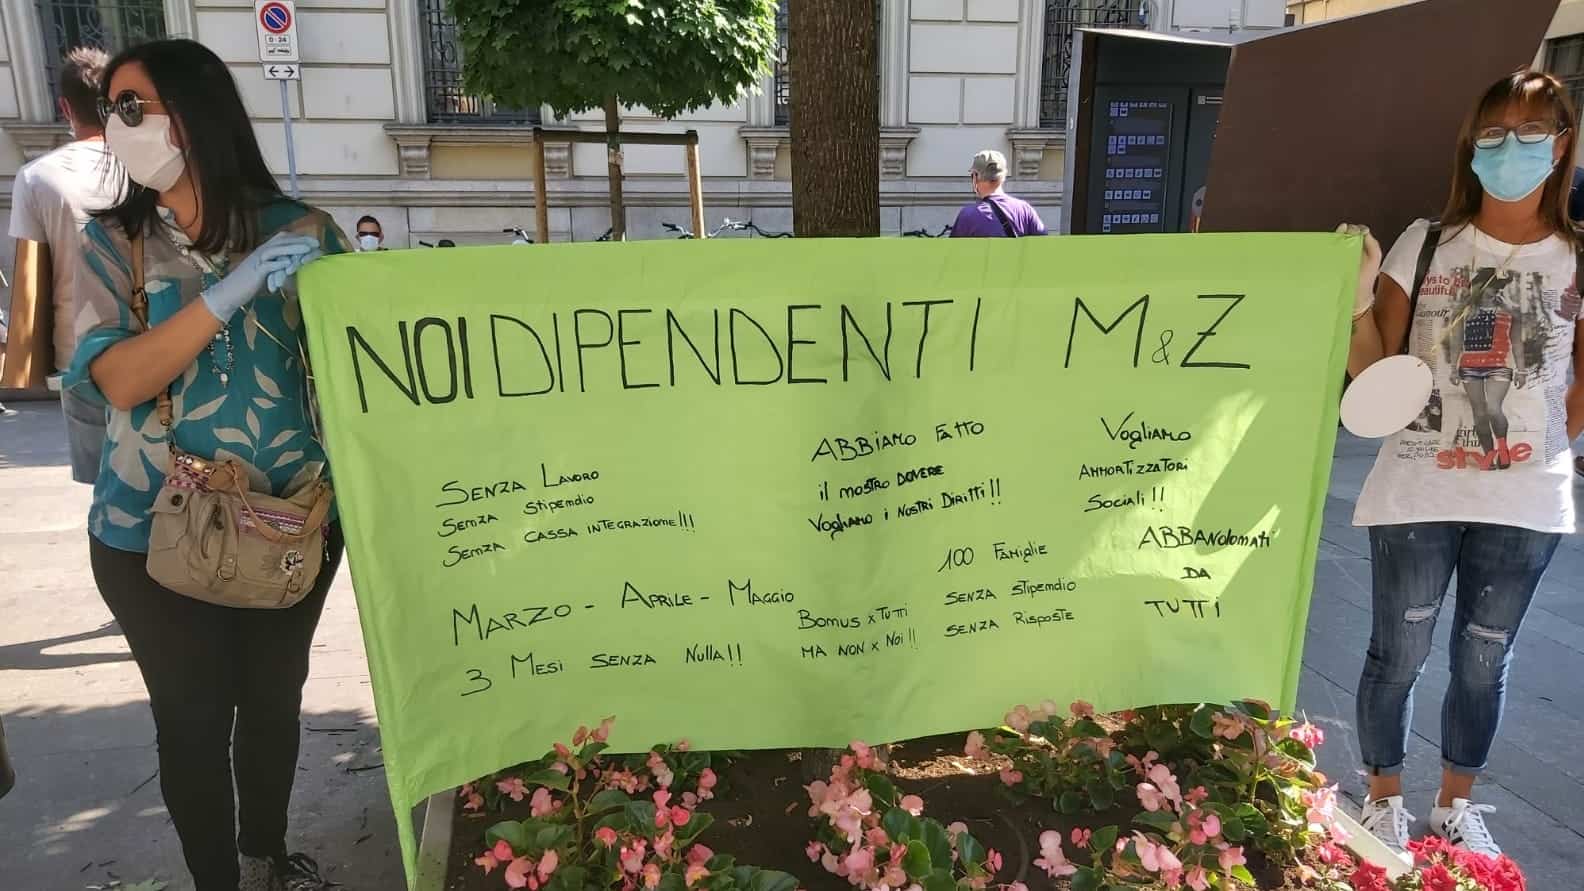 0-24
NOI DIPENDENTI M&Z
SENZA LAVORO
SENZA STIPENDIO
SENZA CASSA INTEGRAZIONE!!!
MARZO - APRILE - MAGGIO
3 MESI SENZA NULLA!!
ABBIAMO FATTO
IL NOSTRO DOVERE
VOGLIAMO I NOSTRI DIRITTI!!
BONUS x TUTTI
MA NON x NOI!!
100 FAMIGLIE
SENZA STIPENDIO
SENZA RISPOSTE
VOGLIAMO
AMMORTIZZATORI
SOCIALI!!
ABBANDONATI
DA
TUTTI
girl
style